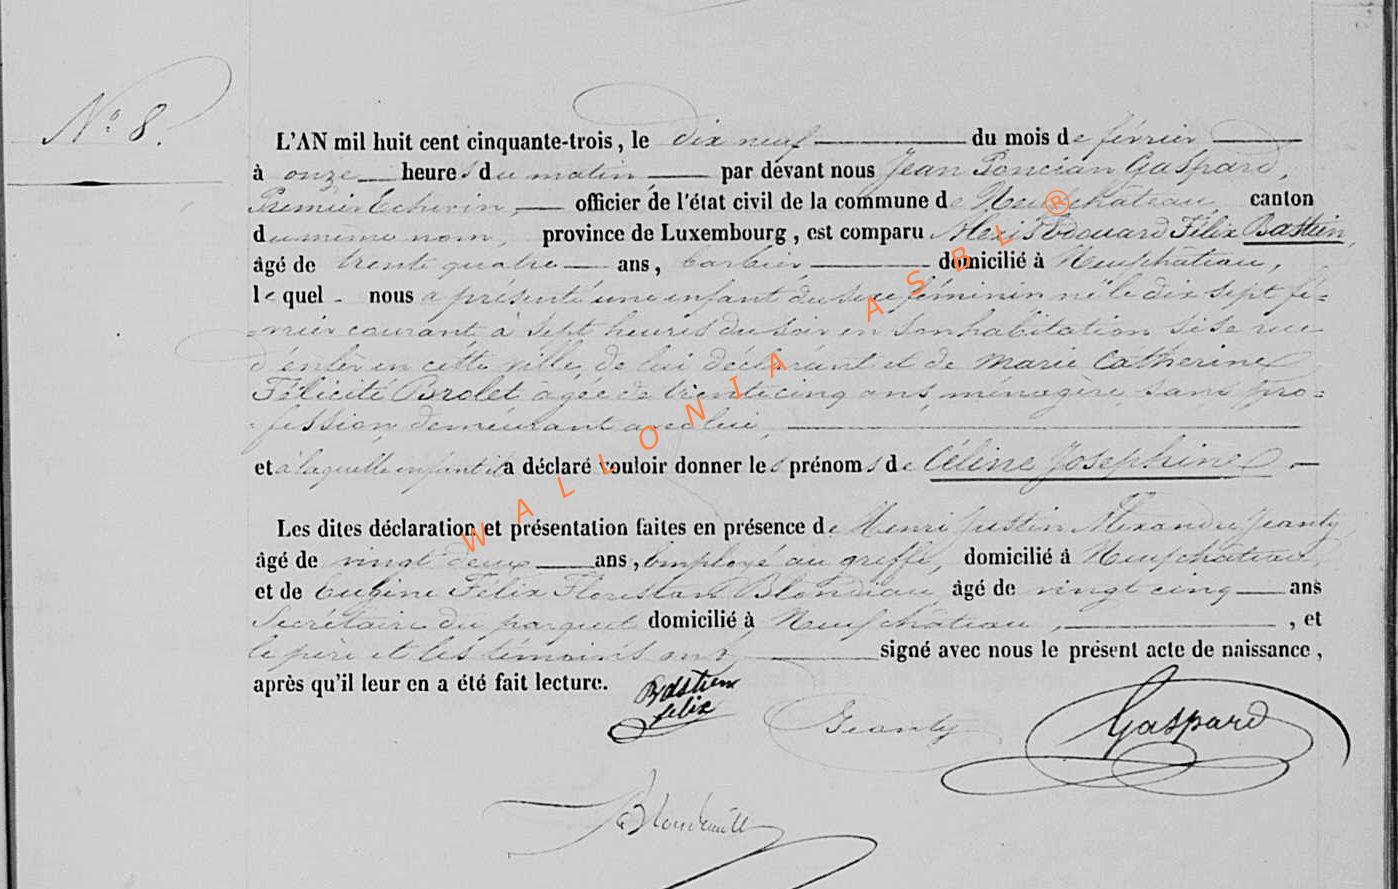 N° 8.
L'AN mil huit cent cinquante-trois, le dix neuf du mois de février
à onze heures du matin, par devant nous Jean Poncian Gaspard,
Premier Echevin, officier de l'état civil de la commune de Neufchâteau, canton
du même nom, province de Luxembourg, est comparu Alexis Edouard Félix Bastien,
âgé de trente quatre ans, barbier, domicilié à Neufchâteau,
lequel nous a présenté une enfant du sexe féminin né le dix sept fé=
=vrier courant à sept heures du soir en son habitation sise rue
en cette ville, de lui déclarant et de Marie Catherine
Félicité Brolet âgée de trente cinq ans, ménagère, sans pro=
=fession, demeurant avec lui,
et à laquelle enfant il a déclaré vouloir donner les prénoms de Céline Josephine
Les dites déclaration et présentation faites en présence de Henri Justin Alexandre Jeanty
âgé de vingt deux ans, employé au greffe, domicilié à Neufchâteau
et de Eugène Félix Florestan Blondiau âgé de vingt cinq ans
Secrétaire du parquet domicilié à Neufchâteau, , et
le père et les témoins ont signé avec nous le présent acte de naissance,
après qu'il leur en a été fait lecture.
Bastien
felix
Jeanty
Gaspard
WALLONIA ASBL ®